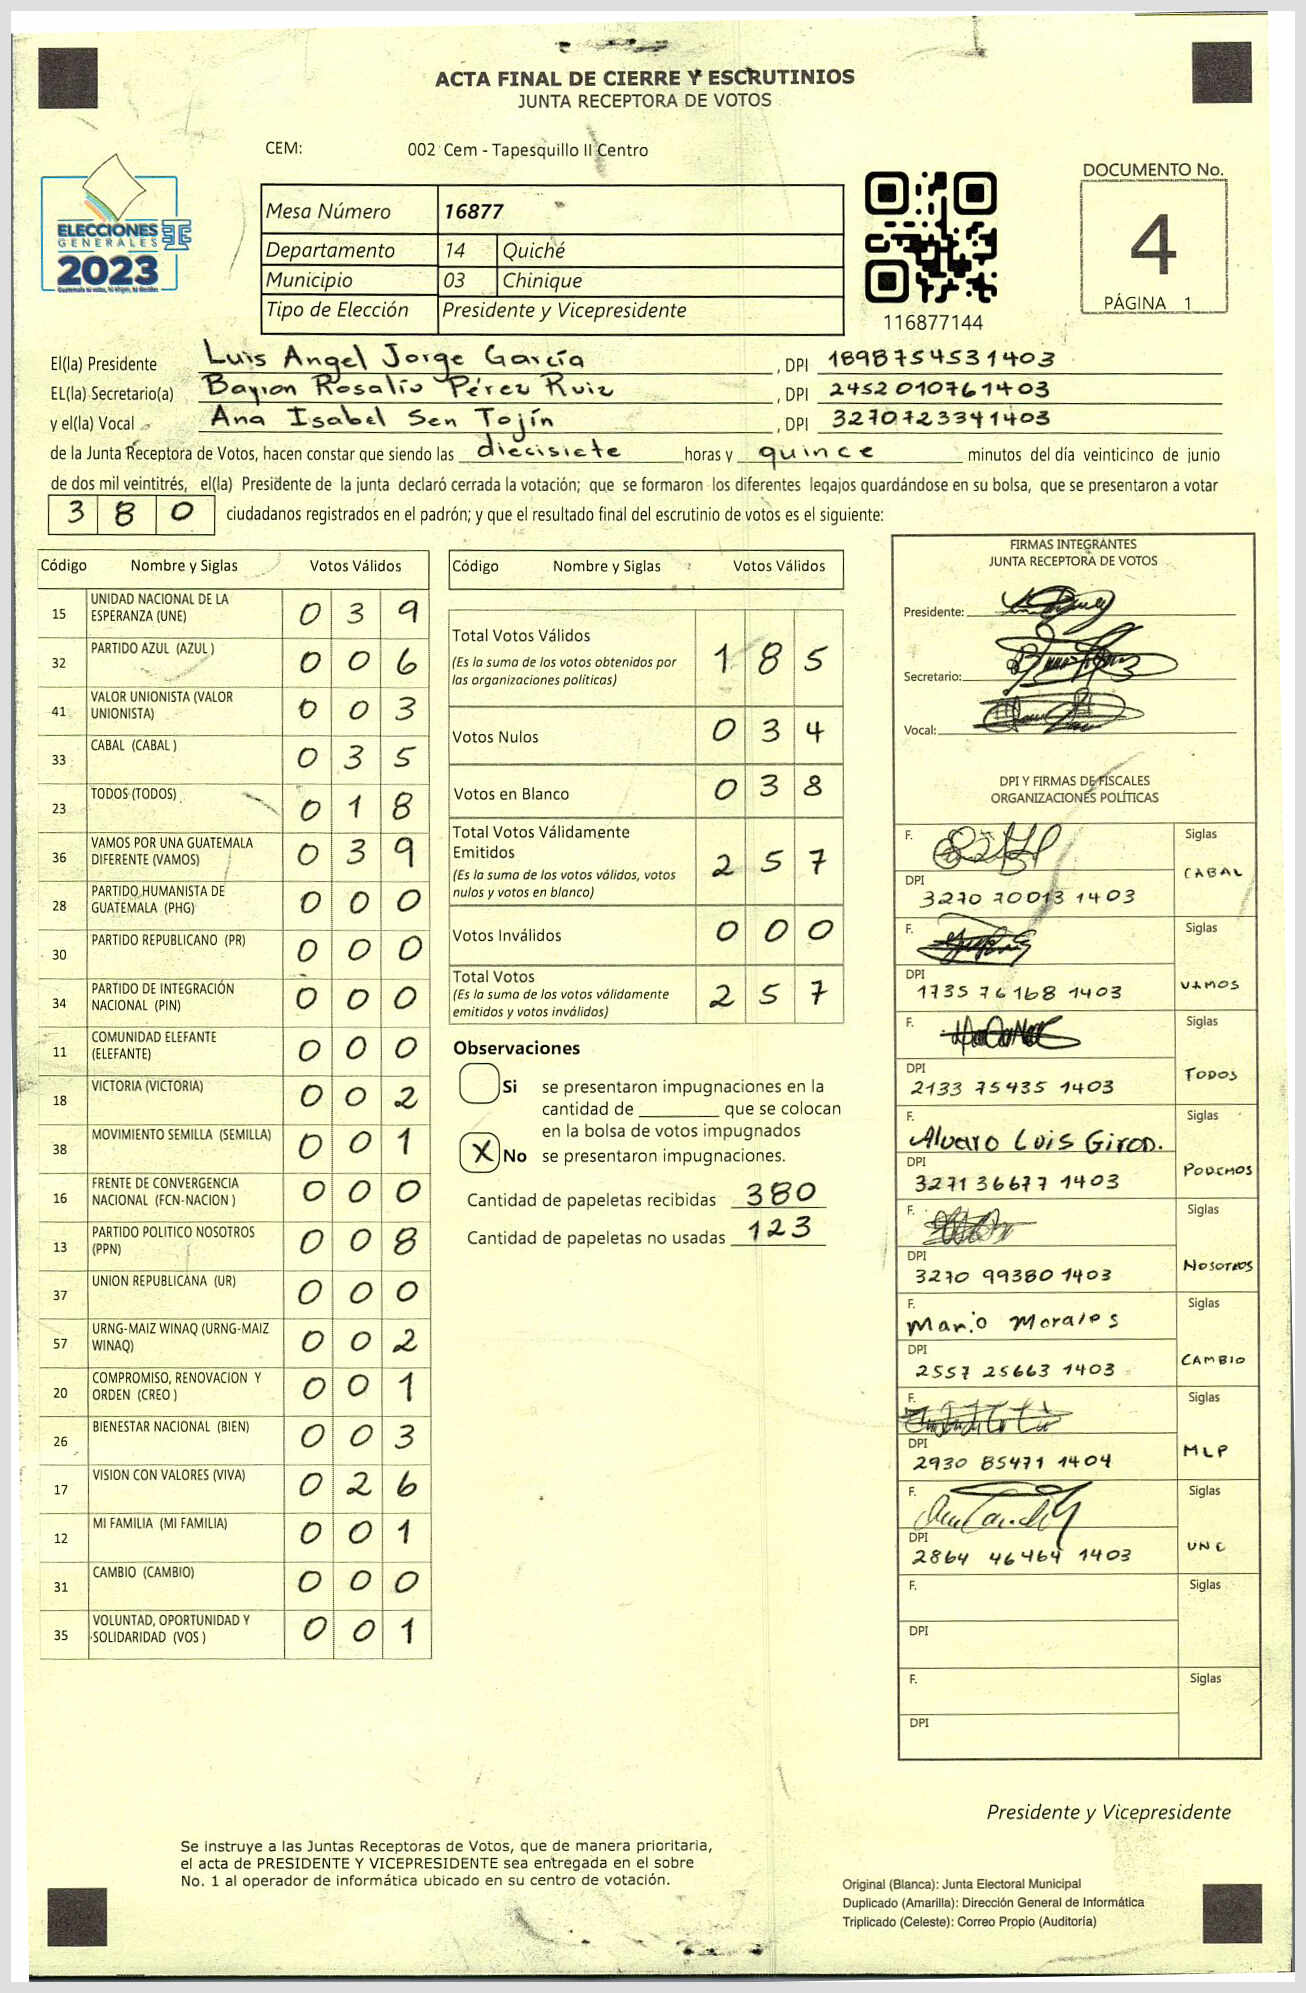 ACTA FINAL DE CIERRE Y ESCRUTINIOS
JUNTA RECEPTORA DE VOTOS
CEM: 002 Cem - Tapesquillo II Centro
ELECCIONES
GENERALES
2023
Mesa Número 16877
Departamento 14 Quiché
Municipio 03 Chinique
Tipo de Elección Presidente y Vicepresidente
116877144
DOCUMENTO No.
4
PÁGINA 1
El(la) Presidente Luis Angel Jorge García , DPI 1898754531403
EL(la) Secretario(a) Bayron Rosalío Pérez Ruiz , DPI 2452010761403
y el(la) Vocal Ana Isabel Sen Tojín , DPI 3270723341403
de la Junta Receptora de Votos, hacen constar que siendo las diecisiete horas y quince minutos del día veinticinco de junio
de dos mil veintitrés, el(la) Presidente de la junta declaró cerrada la votación; que se formaron los diferentes legajos guardándose en su bolsa, que se presentaron a votar
380 ciudadanos registrados en el padrón; y que el resultado final del escrutinio de votos es el siguiente:
Código Nombre y Siglas Votos Válidos
15 UNIDAD NACIONAL DE LA ESPERANZA (UNE) 039
32 PARTIDO AZUL (AZUL ) 006
41 VALOR UNIONISTA (VALOR UNIONISTA) 003
33 CABAL (CABAL ) 035
23 TODOS (TODOS) 018
36 VAMOS POR UNA GUATEMALA DIFERENTE (VAMOS) 039
28 PARTIDO HUMANISTA DE GUATEMALA (PHG) 000
30 PARTIDO REPUBLICANO (PR) 000
34 PARTIDO DE INTEGRACIÓN NACIONAL (PIN) 000
11 COMUNIDAD ELEFANTE (ELEFANTE) 000
18 VICTORIA (VICTORIA) 002
38 MOVIMIENTO SEMILLA (SEMILLA) 001
16 FRENTE DE CONVERGENCIA NACIONAL (FCN-NACION ) 000
13 PARTIDO POLITICO NOSOTROS (PPN) 008
37 UNION REPUBLICANA (UR) 000
57 URNG-MAIZ WINAQ (URNG-MAIZ WINAQ) 002
20 COMPROMISO, RENOVACION Y ORDEN (CREO ) 001
26 BIENESTAR NACIONAL (BIEN) 003
17 VISION CON VALORES (VIVA) 026
12 MI FAMILIA (MI FAMILIA) 001
31 CAMBIO (CAMBIO) 000
35 VOLUNTAD, OPORTUNIDAD Y SOLIDARIDAD (VOS ) 001
Código Nombre y Siglas Votos Válidos
Total Votos Válidos 185
(Es la suma de los votos obtenidos por las organizaciones políticas)
Votos Nulos 034
Votos en Blanco 038
Total Votos Válidamente Emitidos 257
(Es la suma de los votos válidos, votos nulos y votos en blanco)
Votos Inválidos 000
Total Votos 257
(Es la suma de los votos válidamente emitidos y votos inválidos)
Observaciones
Si se presentaron impugnaciones en la
cantidad de ________ que se colocan
en la bolsa de votos impugnados
X No se presentaron impugnaciones.
Cantidad de papeletas recibidas 380
Cantidad de papeletas no usadas 123
FIRMAS INTEGRANTES
JUNTA RECEPTORA DE VOTOS
Presidente:
Secretario:
Vocal:
DPI Y FIRMAS DE FISCALES
ORGANIZACIONES POLÍTICAS
F. Siglas CABAL
DPI 3270 20013 1403
F. Siglas VAMOS
DPI 1735 76168 1403
F. Siglas TODOS
DPI 2133 75435 1403
F. Alvaro Luis Giron. Siglas PODEMOS
DPI 3271 36677 1403
F. Siglas NOSOTROS
DPI 3270 99380 1403
F. Mario Morales Siglas CAMBIO
DPI 2557 25663 1403
F. Siglas MLP
DPI 2930 85471 1404
F. Siglas UNE
DPI 2864 46464 1403
F. Siglas
DPI
F. Siglas
DPI
Presidente y Vicepresidente
Se instruye a las Juntas Receptoras de Votos, que de manera prioritaria,
el acta de PRESIDENTE Y VICEPRESIDENTE sea entregada en el sobre
No. 1 al operador de informática ubicado en su centro de votación.
Original (Blanca): Junta Electoral Municipal
Duplicado (Amarilla): Dirección General de Informática
Triplicado (Celeste): Correo Propio (Auditoría)